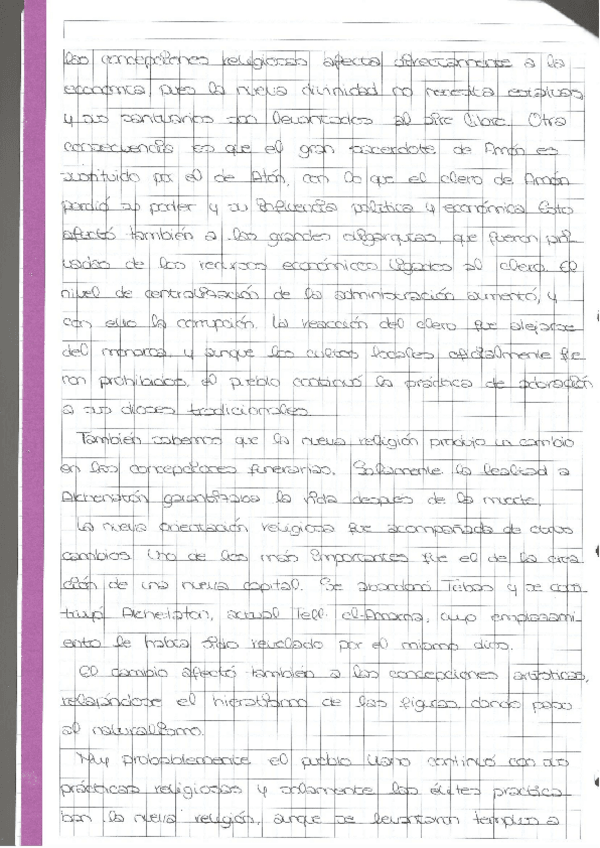 las concepciones religiosas afecta directamente a la
economía, pues la nueva divinidad no necesita estatuas
y sus santuarios son levantados al aire libre. Otra
consecuencia es que el gran sacerdote de Amón es
sustituido por el de Atón, con lo que el clero de Amón
perdió su poder y su influencia política y económica. Esto
afectó también a las grandes oligarquías, que fueron pri-
vadas de los recursos económicos ligados al clero. El
nivel de centralización de la administración aumentó, y
con ello la corrupción. La reacción del clero fue alejarse
del monarca y aunque los cultos locales oficialmente fue
ron prohibidos, el pueblo continuó la práctica de adoración
a sus dioses tradicionales.
También sabemos que la nueva religión produjo un cambio
en las concepciones funerarias. Solamente la lealtad a
Akhenatón garantizaba la vida después de la muerte.
La nueva orientación religiosa fue acompañada de otros
cambios. Uno de los más importantes fue el de la crea
ción de una nueva capital. Se abandonó Tebas y se cons
truyó Akhetaton, actual Tell el-Amarna, cuyo emplazami-
ento le había sido revelado por el mismo dios.
El cambio afectó también a las concepciones artísticas,
relajándose el hieratismo de las figuras dando paso
al naturalismo.
Muy probablemente el pueblo llano continuó con sus
prácticas religiosas y solamente las élites practica
ban la nueva religión, aunque se levantaron templos a